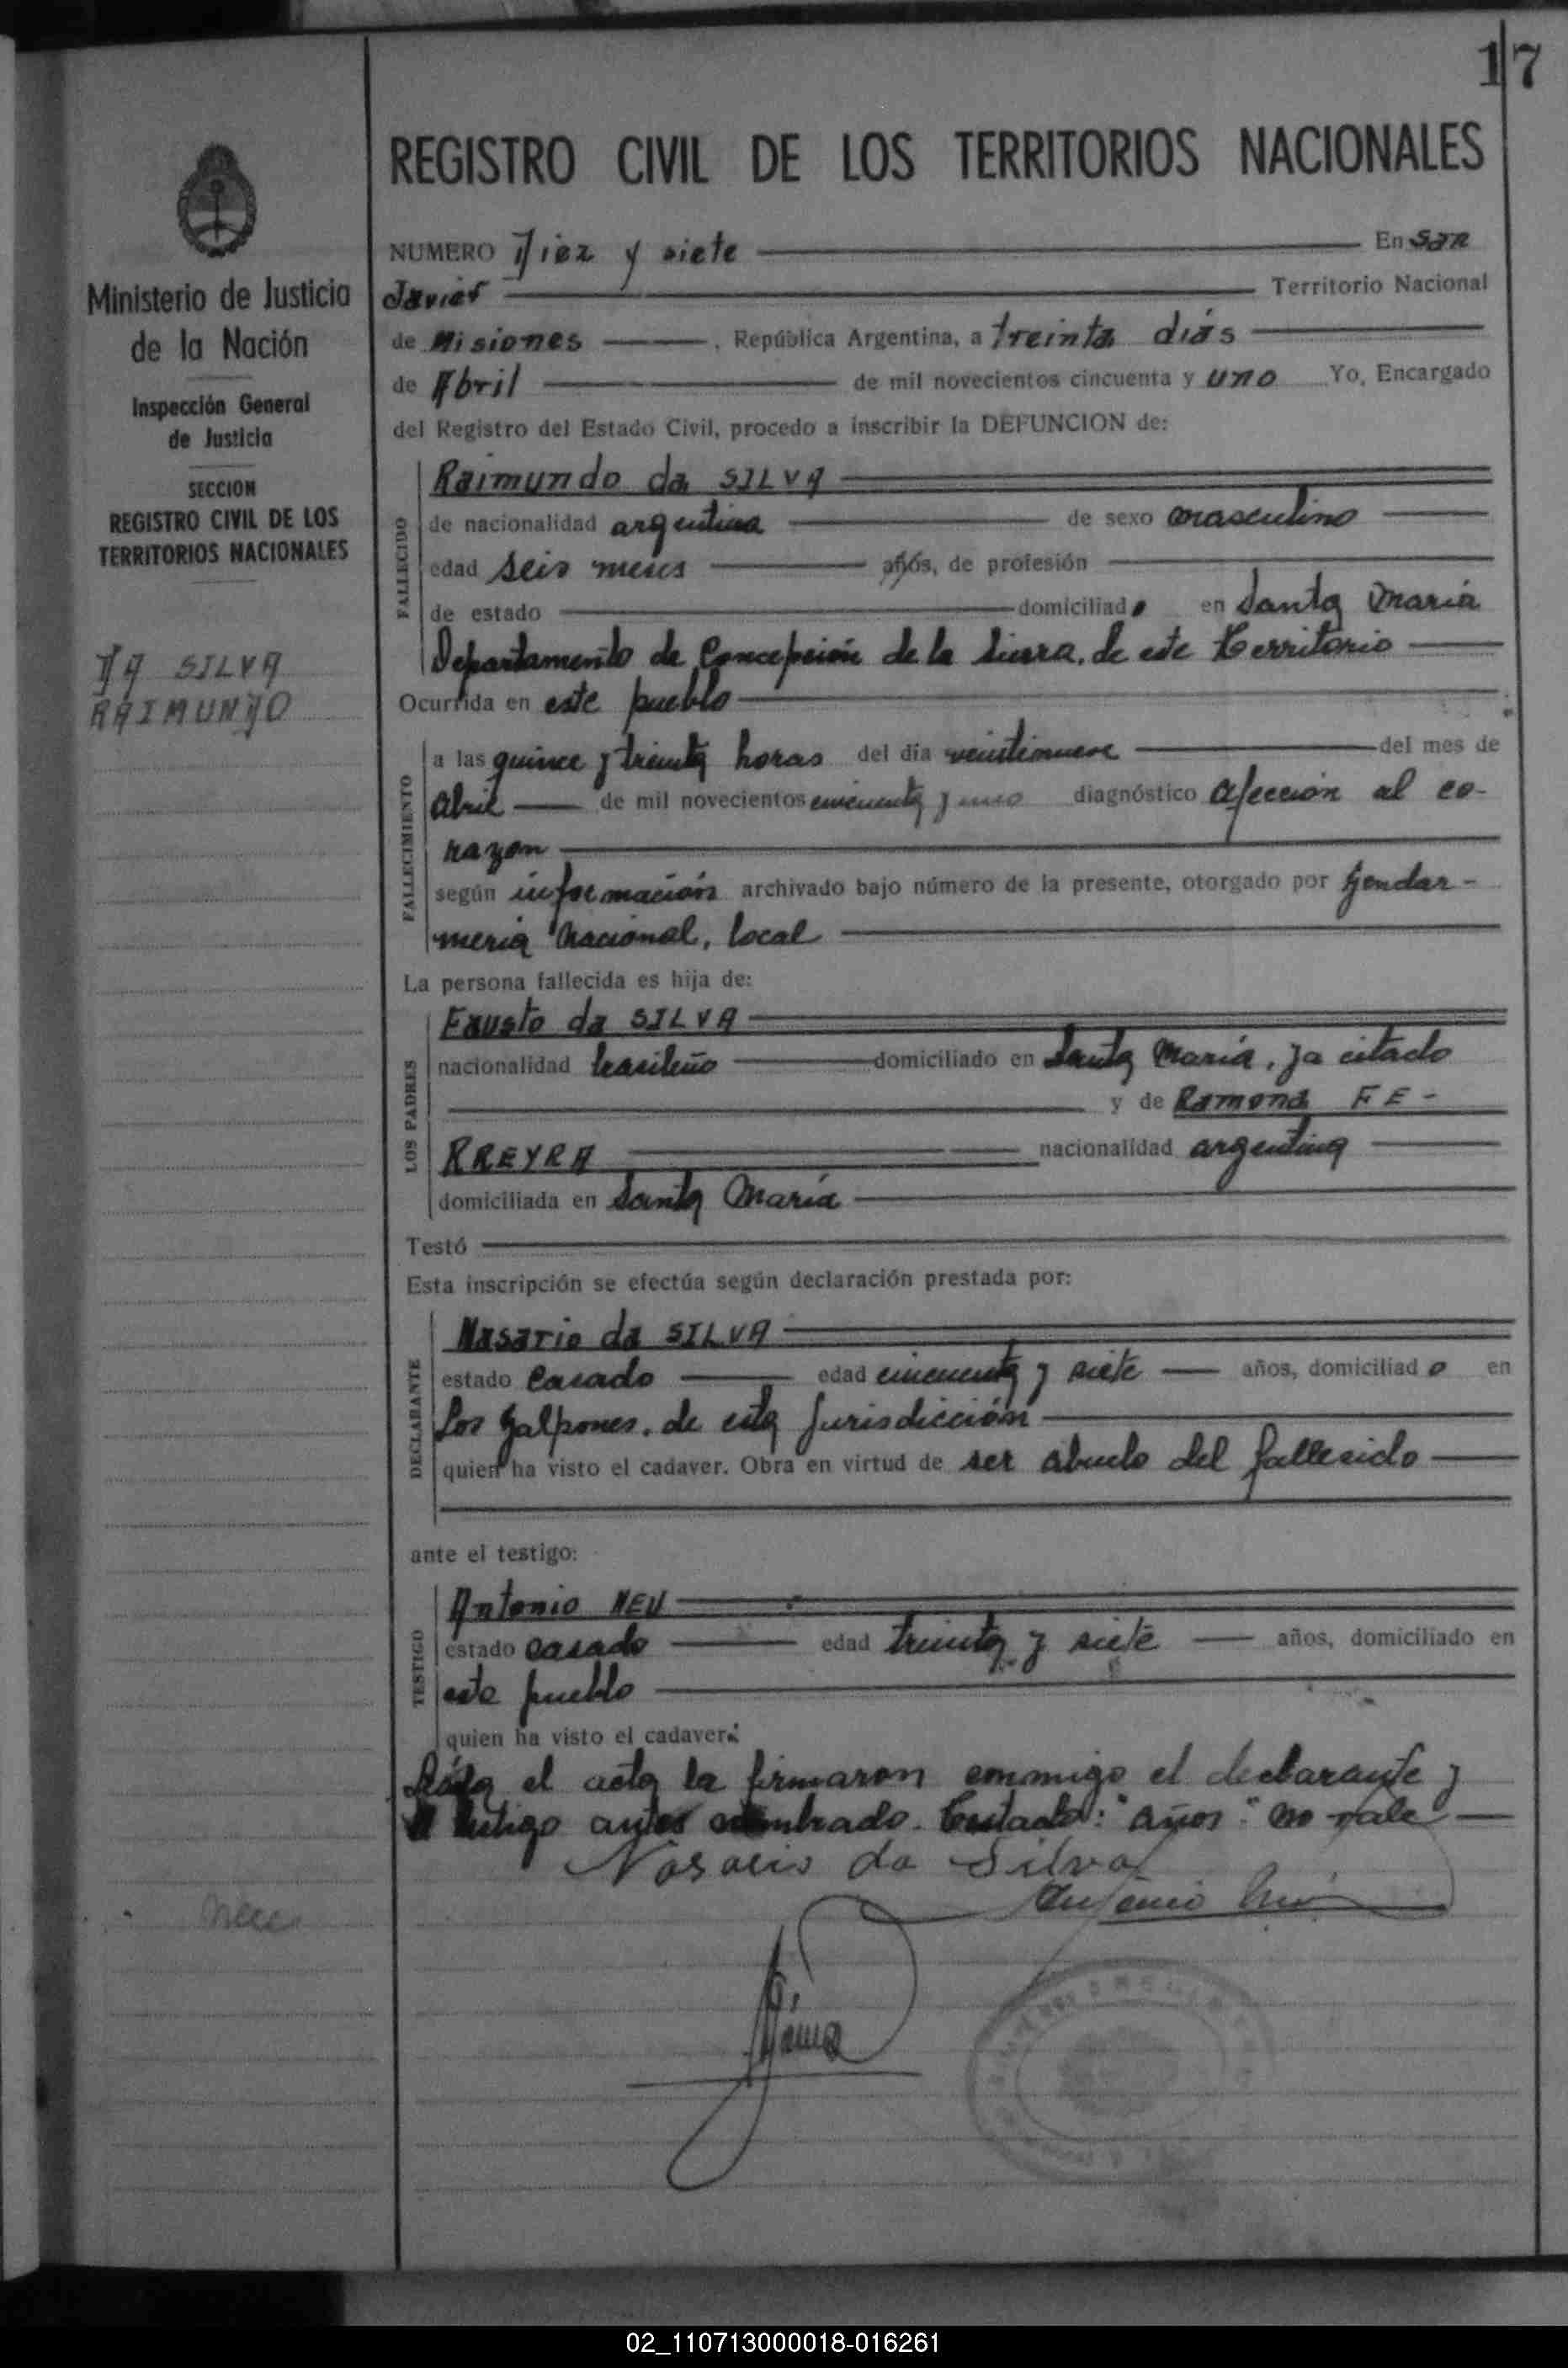 17
REGISTRO CIVIL DE LOS TERRITORIOS NACIONALES
Ministerio de Justicia
de la Nación
Inspección General
de Justicia
SECCION
REGISTRO CIVIL DE LOS
TERRITORIOS NACIONALES
DA SILVA
RAIMUNDO
NUMERO Diez y siete En San
Javier Territorio Nacional
de Misiones . República Argentina, a treinta días
de Abril de mil novecientos cincuenta y uno Yo, Encargado
del Registro del Estado Civil, procedo a inscribir la DEFUNCION de:
FALLECIDO
Raimundo da SILVA
de nacionalidad argentina de sexo masculino
edad seis meses años, de profesión
de estado domiciliado en Santa María
Departamento de Concepción de la Sierra, de este Territorio
Ocurrida en este pueblo
FALLECIMIENTO
a las quince y treinta horas del día veintinueve del mes de
abril de mil novecientos cincuenta y uno diagnóstico afección al co-
razon
según información archivado bajo número de la presente, otorgado por Gendar-
meria Nacional, local
La persona fallecida es hija de:
LOS PADRES
Fausto da SILVA
nacionalidad brasileño domiciliado en Santa María, ya citado
y de Ramona FE-
RREYRA nacionalidad argentina
domiciliada en Santa María
Testó
Esta inscripción se efectúa según declaración prestada por:
DECLARANTE
Nasario da SILVA
estado casado edad cincuenta y siete años, domiciliado en
Los Galpones, de esta Jurisdicción
quien ha visto el cadaver. Obra en virtud de ser abuelo del fallecido
ante el testigo:
TESTIGO
Antonio NEU
estado casado edad treinta y siete años, domiciliado en
este pueblo
quien ha visto el cadaver.
Leída el acta la firmaron conmigo el declarante y
el testigo antes nombrado. Testado: "años" no vale
Nasario da Silva
02_110713000018-016261